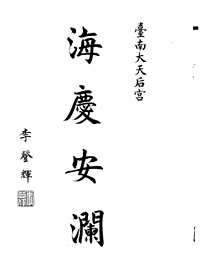 臺南大天后宮
海慶安瀾
李登輝